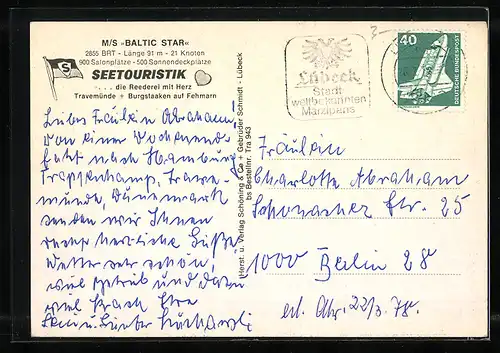 M/S »BALTIC STAR«
2855 BRT - Länge 91 m - 21 Knoten
900 Salonplätze - 500 Sonnendeckplätze
S
SEETOURISTIK
... die Reederei mit Herz
Travemünde + Burgstaaken auf Fehmarn
Liebes Fräulein Abraham!
Von einer Wochenend-
fahrt nach Hamburg,
Trappenkamp, Trave-
münde, Dänemark
senden wir Ihnen
recht herzliche Grüße
Wetter sehr schön,
viel Betrieb und dazu
viel Krach Ihre
u. Günter
Herst. u. Verlag Schöning & Co + Gebrüder Schmidt - Lübeck
bs Bestellnr. Tra 943
Lübeck
Stadt
weltbekannten
Marzipans
40
DEUTSCHE BUNDESPOST
Fräulein
Charlotte Abraham
Schonacher Str. 25
1000 Berlin 28
erl. Abr. 22/3. 78.